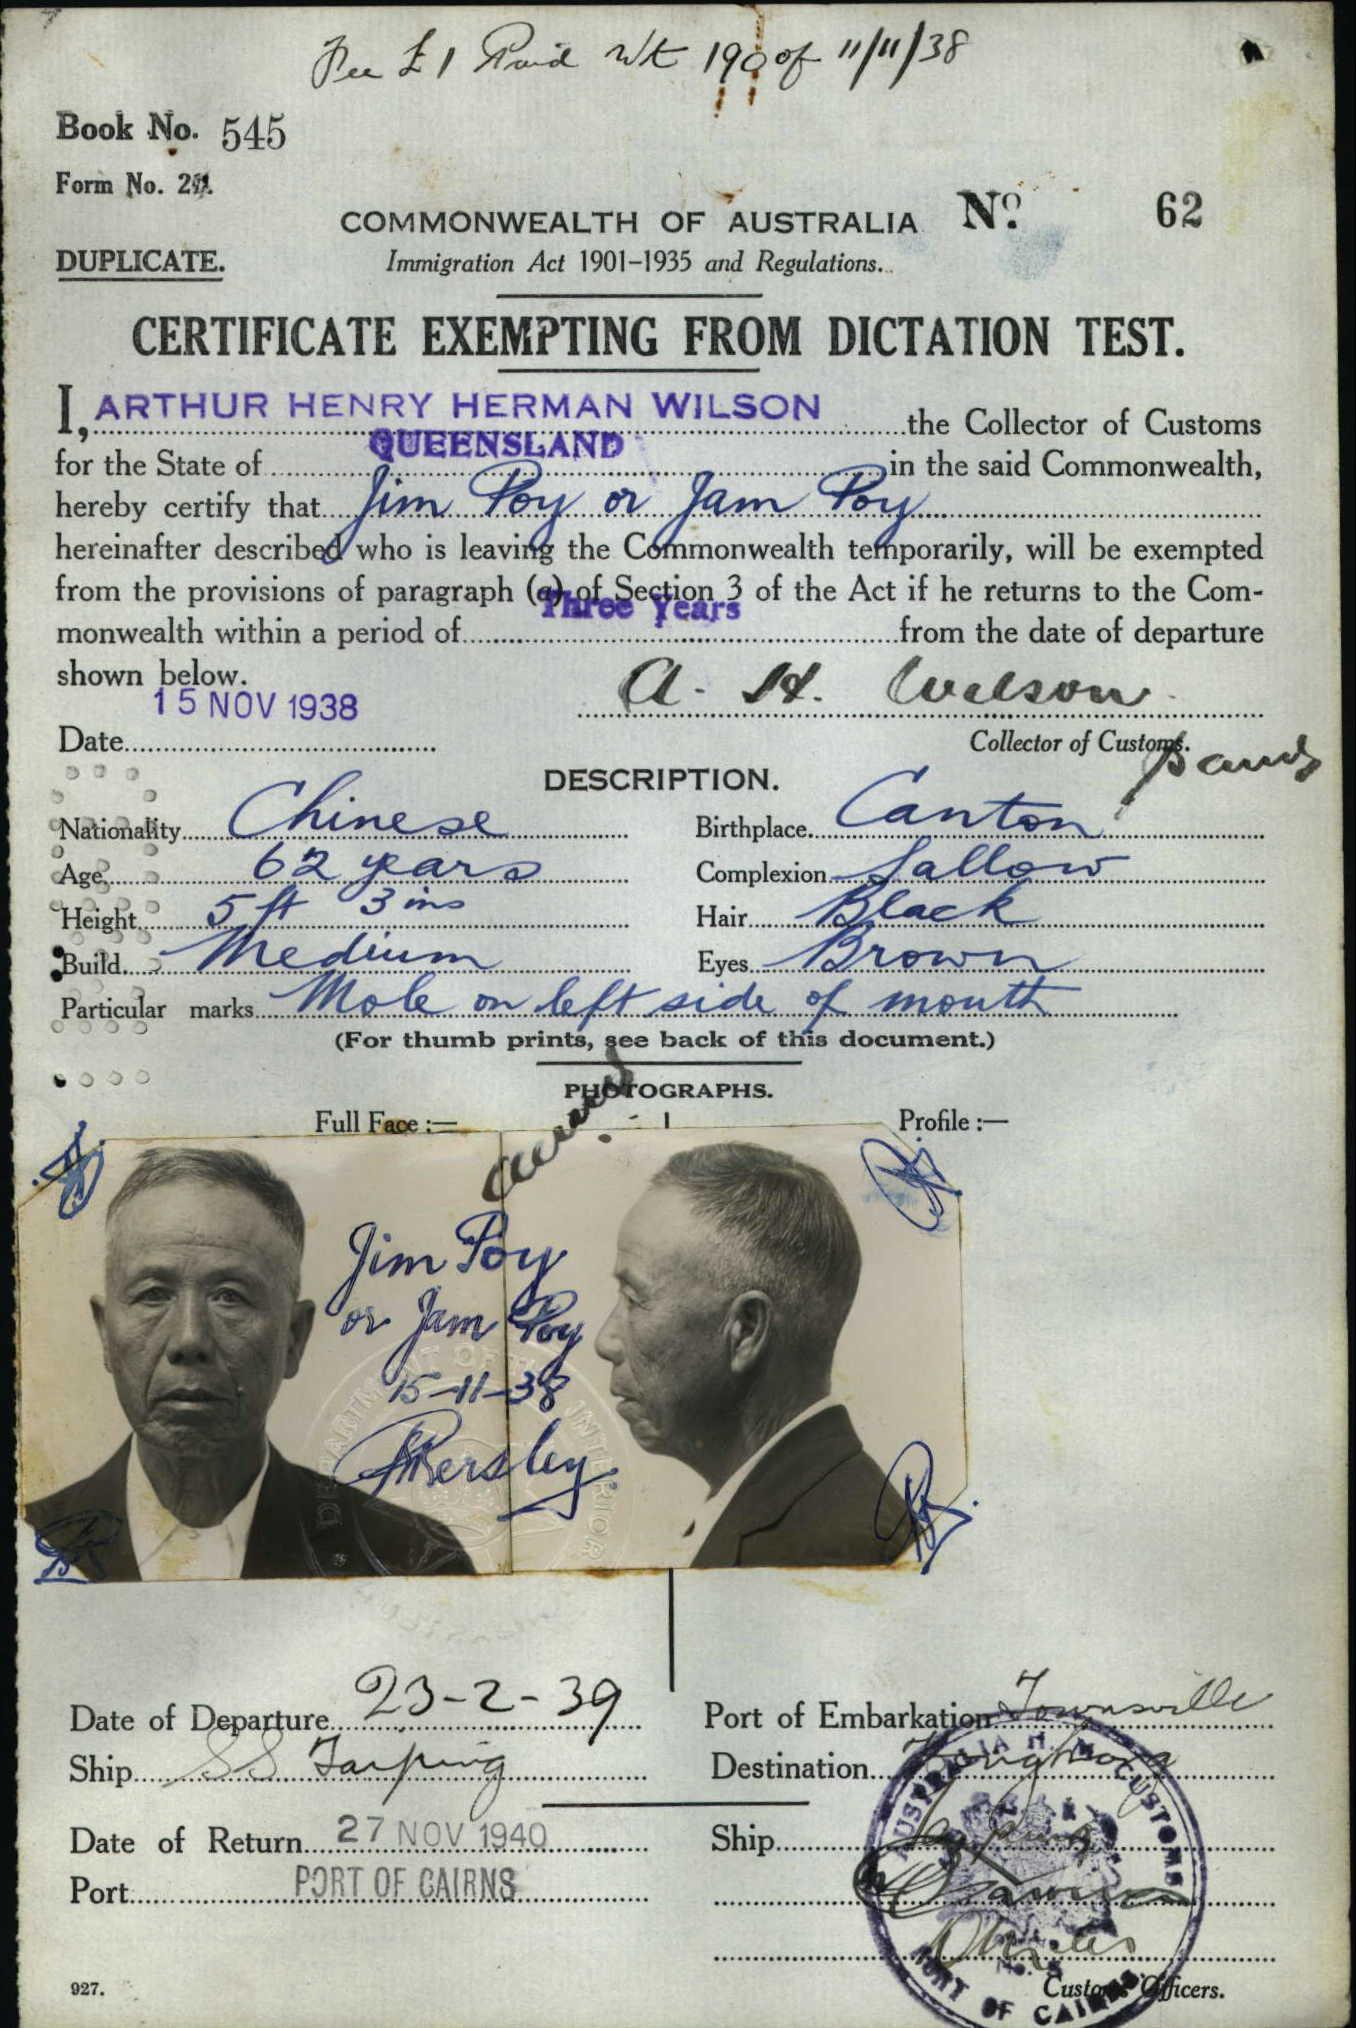 Fee £1 Paid 190 of 11/11/38
Book No. 545
Form No. 21.
COMMONWEALTH OF AUSTRALIA No. 62
DUPLICATE.
Immigration Act 1901–1935 and Regulations.
CERTIFICATE EXEMPTING FROM DICTATION TEST.
I, ARTHUR HENRY HERMAN WILSON the Collector of Customs
for the State of QUEENSLAND in the said Commonwealth,
hereby certify that Jim Poy or Jam Poy
hereinafter described who is leaving the Commonwealth temporarily, will be exempted
from the provisions of paragraph (a) of Section 3 of the Act if he returns to the Com-
monwealth within a period of Three Years from the date of departure
shown below.
15 NOV 1938
A. H. Wilson
Date
Collector of Customs.
DESCRIPTION.
Nationality Chinese Birthplace Canton
Age 62 years Complexion Sallow
Height 5 ft 3 ins Hair Black
Build Medium Eyes Brown
Particular marks Mole on left side of mouth
(For thumb prints, see back of this document.)
PHOTOGRAPHS.
Full Face :— Profile :—
Jim Poy
or Jam Poy
15-11-38
DEPARTMENT OF THE INTERIOR
Date of Departure 23-2-39 Port of Embarkation Townsville
Ship SS Taiping Destination Hongkong
Date of Return 27 NOV 1940 Ship Taiping
Port PORT OF CAIRNS
AUSTRALIA H. M. CUSTOMS
PORT OF CAIRNS
Customs Officers.
927.